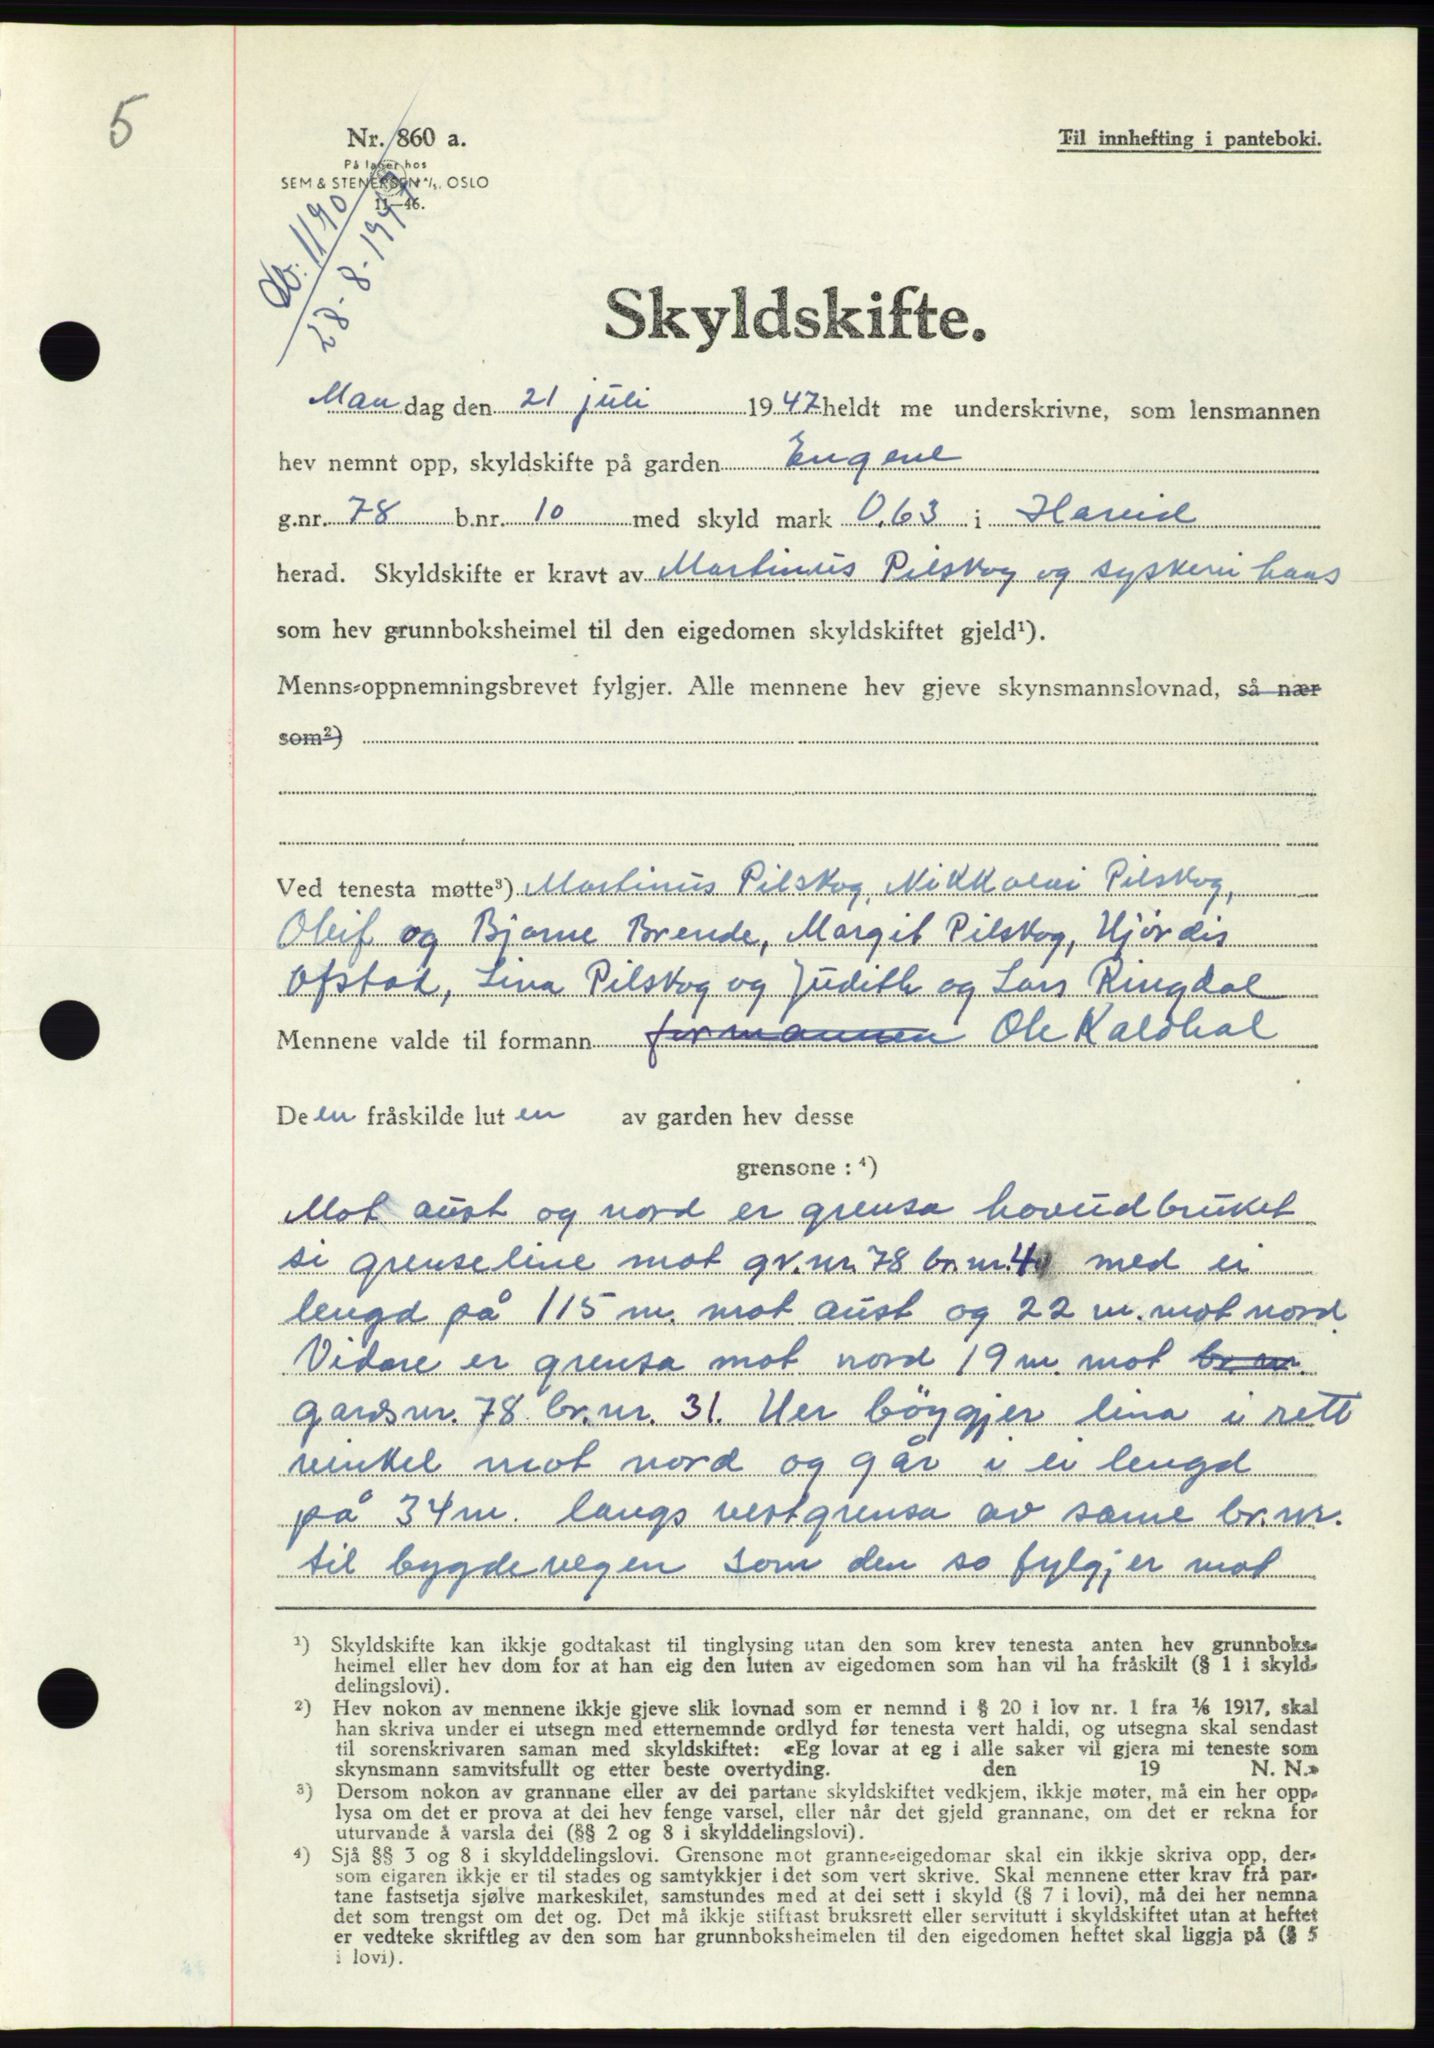 5
Nr. 860 a.
På lager hos
SEM & STENERSEN A/S, OSLO
11—46.
Til innhefting i panteboki.
Db. 1190
28-8-1947
Skyldskifte.
Mandag den 21 juli 1947 heldt me underskrivne, som lensmannen
hev nemnt opp, skyldskifte på garden Engene
g.nr. 78 b.nr. 10 med skyld mark 0.63 i Hareid
herad. Skyldskifte er kravt av Martinus Pilskog og syskeni hans
som hev grunnboksheimel til den eigedomen skyldskiftet gjeld¹).
Menns-oppnemningsbrevet fylgjer. Alle mennene hev gjeve skynsmannslovnad, så nær
som²)
Ved tenesta møtte³) Martinus Pilskog, Nikkolai Pilskog,
Oleif og Bjarne Brende, Margit Pilskog, Hjördis
Ofstad, Lina Pilskog og Judith og Lars Ringdal
Mennene valde til formann formannen Ole Kaldhol
De en fråskilde lut en av garden hev desse
grensone : ⁴)
Mot aust og nord er grensa hovudbruket
si grenseline mot gr.nr. 78 br.nr. 4 med ei
lengd på 115 m. mot aust og 22 m. mot nord
Vidare er grensa mot nord 19 m mot br. nr.
gardsnr. 78 br.nr. 31. Her böygjer lina i rett
vinkel mot nord og går i ei lengd
på 34 m. langs vestgrensa av same br.nr.
til bygdevegen som den so fylgjer mot
¹) Skyldskifte kan ikkje godtakast til tinglysing utan den som krev tenesta anten hev grunnboks-
heimel eller hev dom for at han eig den luten av eigedomen som han vil ha fråskilt (§ 1 i skyld-
delingslovi).
²) Hev nokon av mennene ikkje gjeve slik lovnad som er nemnd i § 20 i lov nr. 1 fra 1/6 1917, skal
han skriva under ei utsegn med etternemnde ordlyd før tenesta vert haldi, og utsegna skal sendast
til sorenskrivaren saman med skyldskiftet: «Eg lovar at eg i alle saker vil gjera mi teneste som
skynsmann samvitsfullt og etter beste overtyding. den 19 N. N.»
³) Dersom nokon av grannane eller av dei partane skyldskiftet vedkjem, ikkje møter, må ein her opp-
lysa om det er prova at dei hev fenge varsel, eller når det gjeld grannane, om det er rekna for
uturvande å varsla dei (§§ 2 og 8 i skylddelingslovi).
⁴) Sjå §§ 3 og 8 i skylddelingslovi. Grensone mot granne-eigedomar skal ein ikkje skriva opp, der-
som eigaren ikkje er til stades og samtykkjer i det som vert skrive. Skal mennene etter krav frå par-
tane fastsetja sjølve markeskilet, samstundes med at dei sett i skyld (§ 7 i lovi), må dei her nemna
det som trengst om det og. Det må ikkje stiftast bruksrett eller servitutt i skyldskiftet utan at heftet
er vedteke skriftleg av den som har grunnboksheimelen til den eigedomen heftet skal liggja på (§ 5
i lovi).